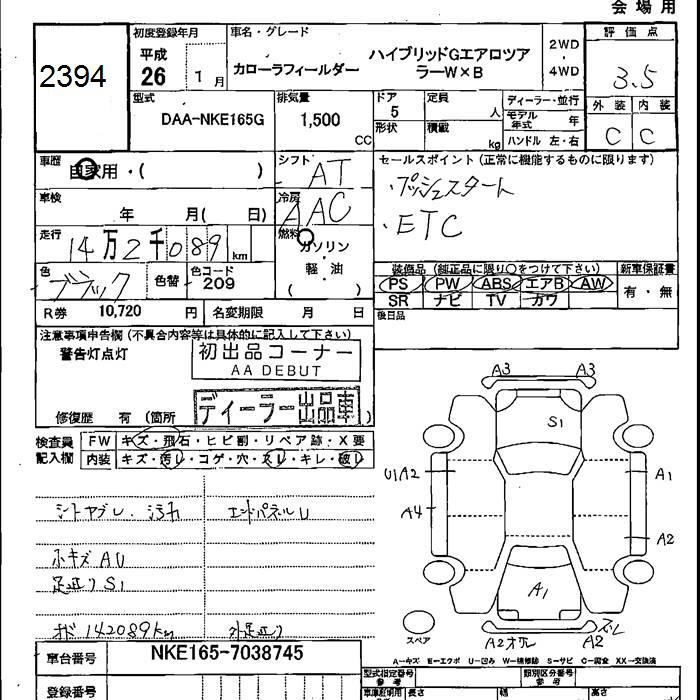 会場用
2394
初度登録年月
平成
26 1月
車名・グレード
カローラフィールダー
ハイブリッドGエアロツア
ラーW×B
2WD
・
4WD
評価点
3.5
外装 内装
C C
型式
DAA-NKE165G
排気量
1,500
CC
ドア
5
形状
定員
人
積載
kg
ディーラー・並行
モデル年式 年
ハンドル 左・右
車歴
自家用・( )
シフト
AT
セールスポイント(正常に機能するものに限ります)
・プッシュスタート
・ETC
車検
年 月( 日)
冷房
AAC
走行
14万2千089km
燃料
ガソリン・
軽・油
( )
色
ブラック
色替
色コード
209
装備品(純正品に限り○をつけて下さい)
PS PW ABS エアB AW
SR ナビ TV カワ
新車保証書
有・無
後日品
R券 10,720 円
名変期限 月 日
注意事項申告欄(不具合内容等は具体的に記入して下さい)
警告灯点灯
初出品コーナー
AA DEBUT
ディーラー出品車
修復歴 有(箇所 )
検査員
記入欄
FW キズ・飛石・ヒビ割・リペア跡・X要
内装 キズ・汚レ・コゲ・穴・スレ・キレ・破レ
シートヤブレ、汚れ
エンドパネルU
小キズAU
足廻りS1
オド142089km
外足廻り
A3 A3
S1
U1A2 A1
A4 A2
A1
スペア
A2オクレ A2
ズレ
A-キズ E-エクボ U-凹み W-補修跡 S-サビ C-腐食 XX-交換済
車台番号
NKE165-7038745
登録番号
型式指定番号
参考
類別区分番号
参考
車庫証明用
長さ 幅 高さ